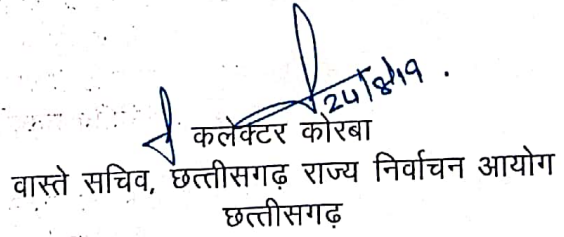 24/8/19.
कलेक्टर कोरबा
वास्ते सचिव, छत्तीसगढ़ राज्य निर्वाचन आयोग
छत्तीसगढ़